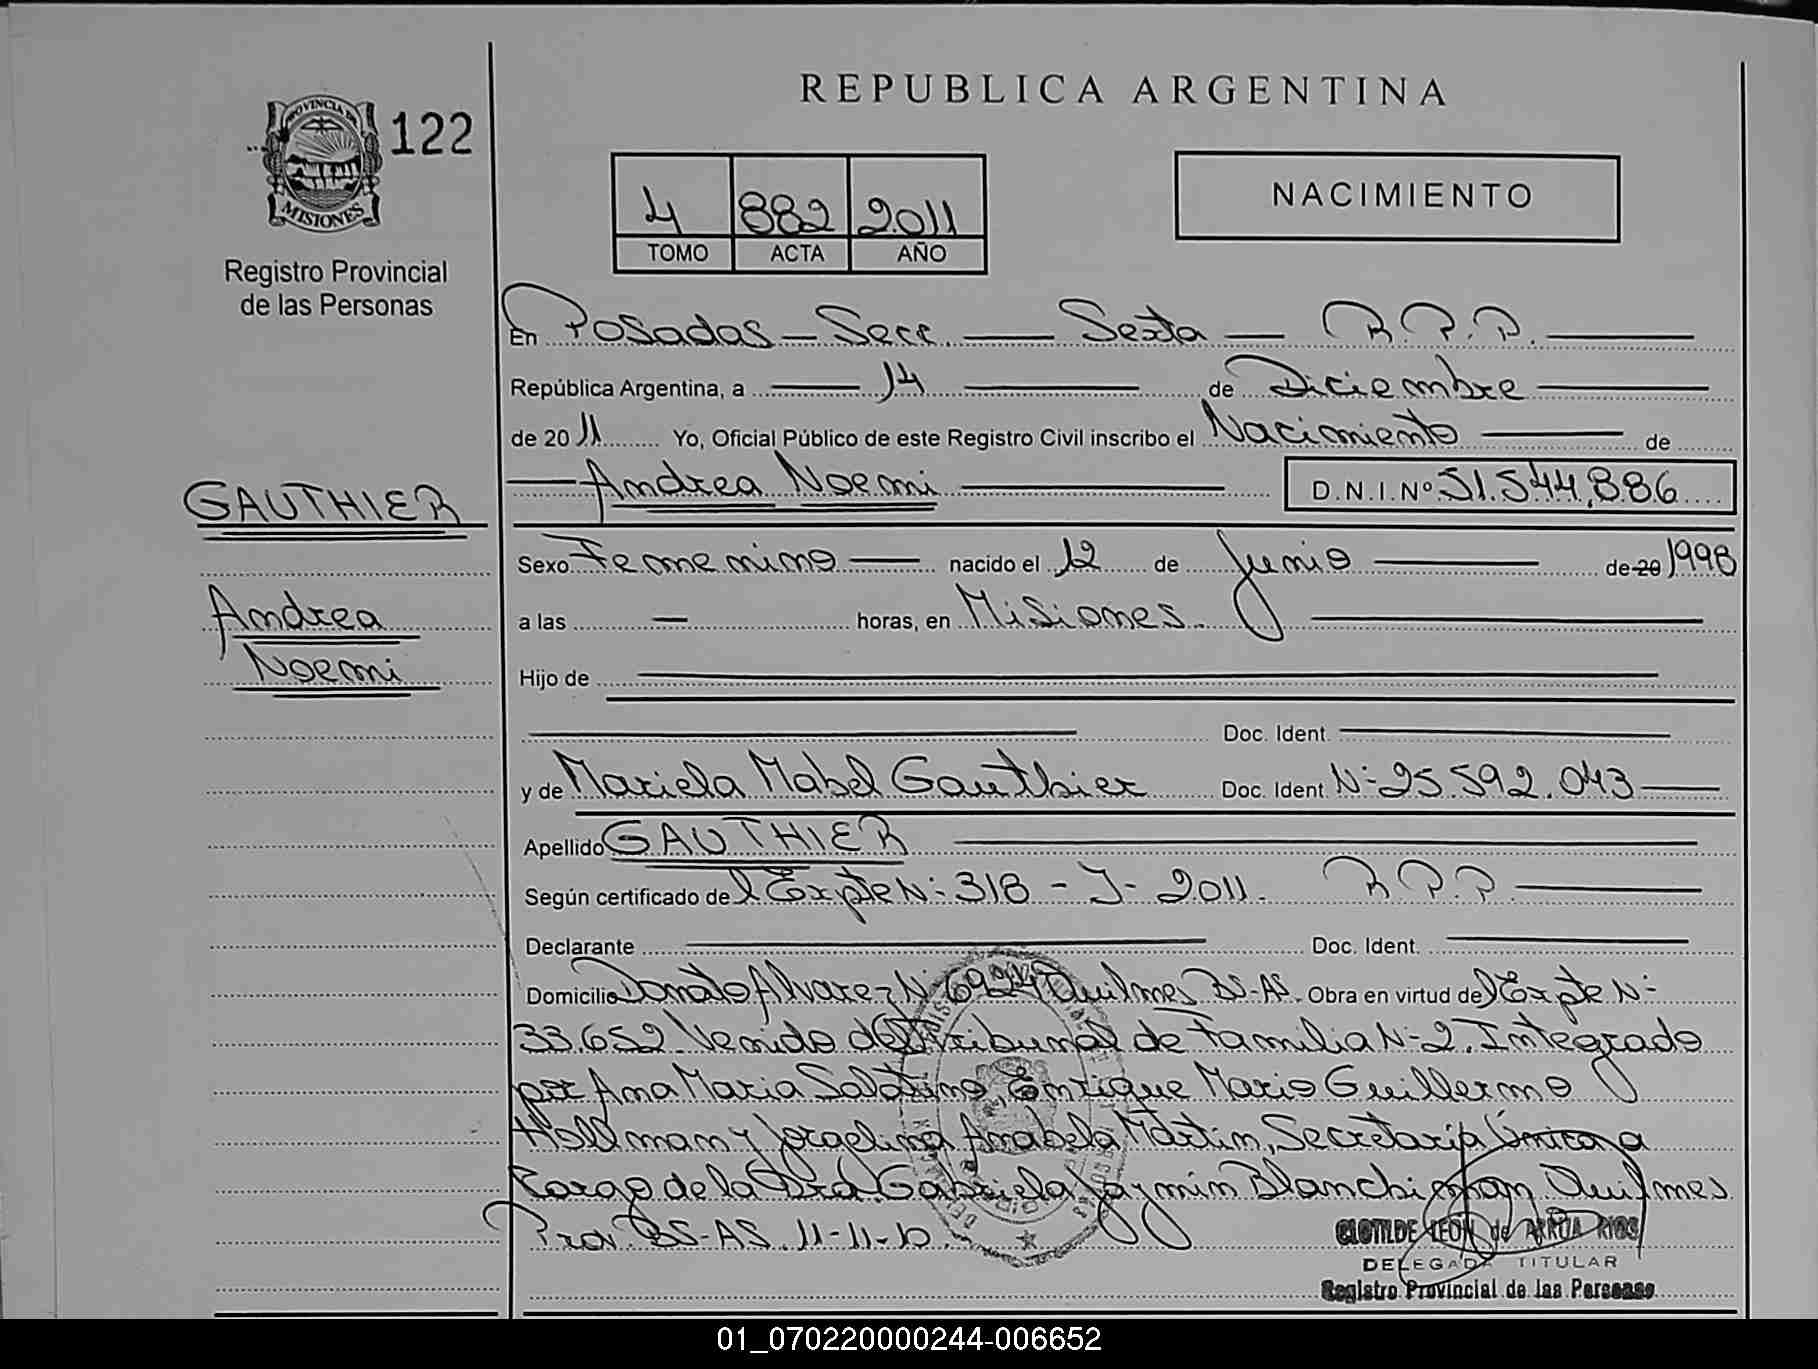 REPUBLICA ARGENTINA
PROVINCIA DE
MISIONES
122
Registro Provincial
de las Personas
4 882 2011
TOMO ACTA AÑO
NACIMIENTO
En Posadas - Secc. — Sexta — R.P.P. —
República Argentina, a — 14 — de Diciembre —
de 2011 Yo, Oficial Público de este Registro Civil inscribo el Nacimiento — de
— Andrea Noemi — D.N.I.Nº 51.544.886
GAUTHIER
Andrea
Noemi
Sexo Femenino — nacido el 12 de Junio — de 20 1998
a las — horas, en Misiones. —
Hijo de —
— Doc. Ident. —
y de Mariela Mabel Gauthier Doc. Ident. Nº 25.592.043 —
Apellido GAUTHIER —
Según certificado del Expte Nº 318 - J - 2011. R.P.P. —
Declarante — Doc. Ident. —
Domicilio Donato Alvarez Nº 6924 Quilmes BS-AS. Obra en virtud del Expte Nº
33.652 Venido del Tribunal de Familia Nº 2. Integrado
por Ana Maria Enrique Mario Guillermo
Hollman y Anabela Martin, Secretaria Única a
Cargo de la Dra. Gabriela Quilmes
Prov. BS-AS. 11-11-10.
CLOTILDE LEON de ARRUA RIOS
DELEGADA TITULAR
Registro Provincial de las Personas
01_070220000244-006652